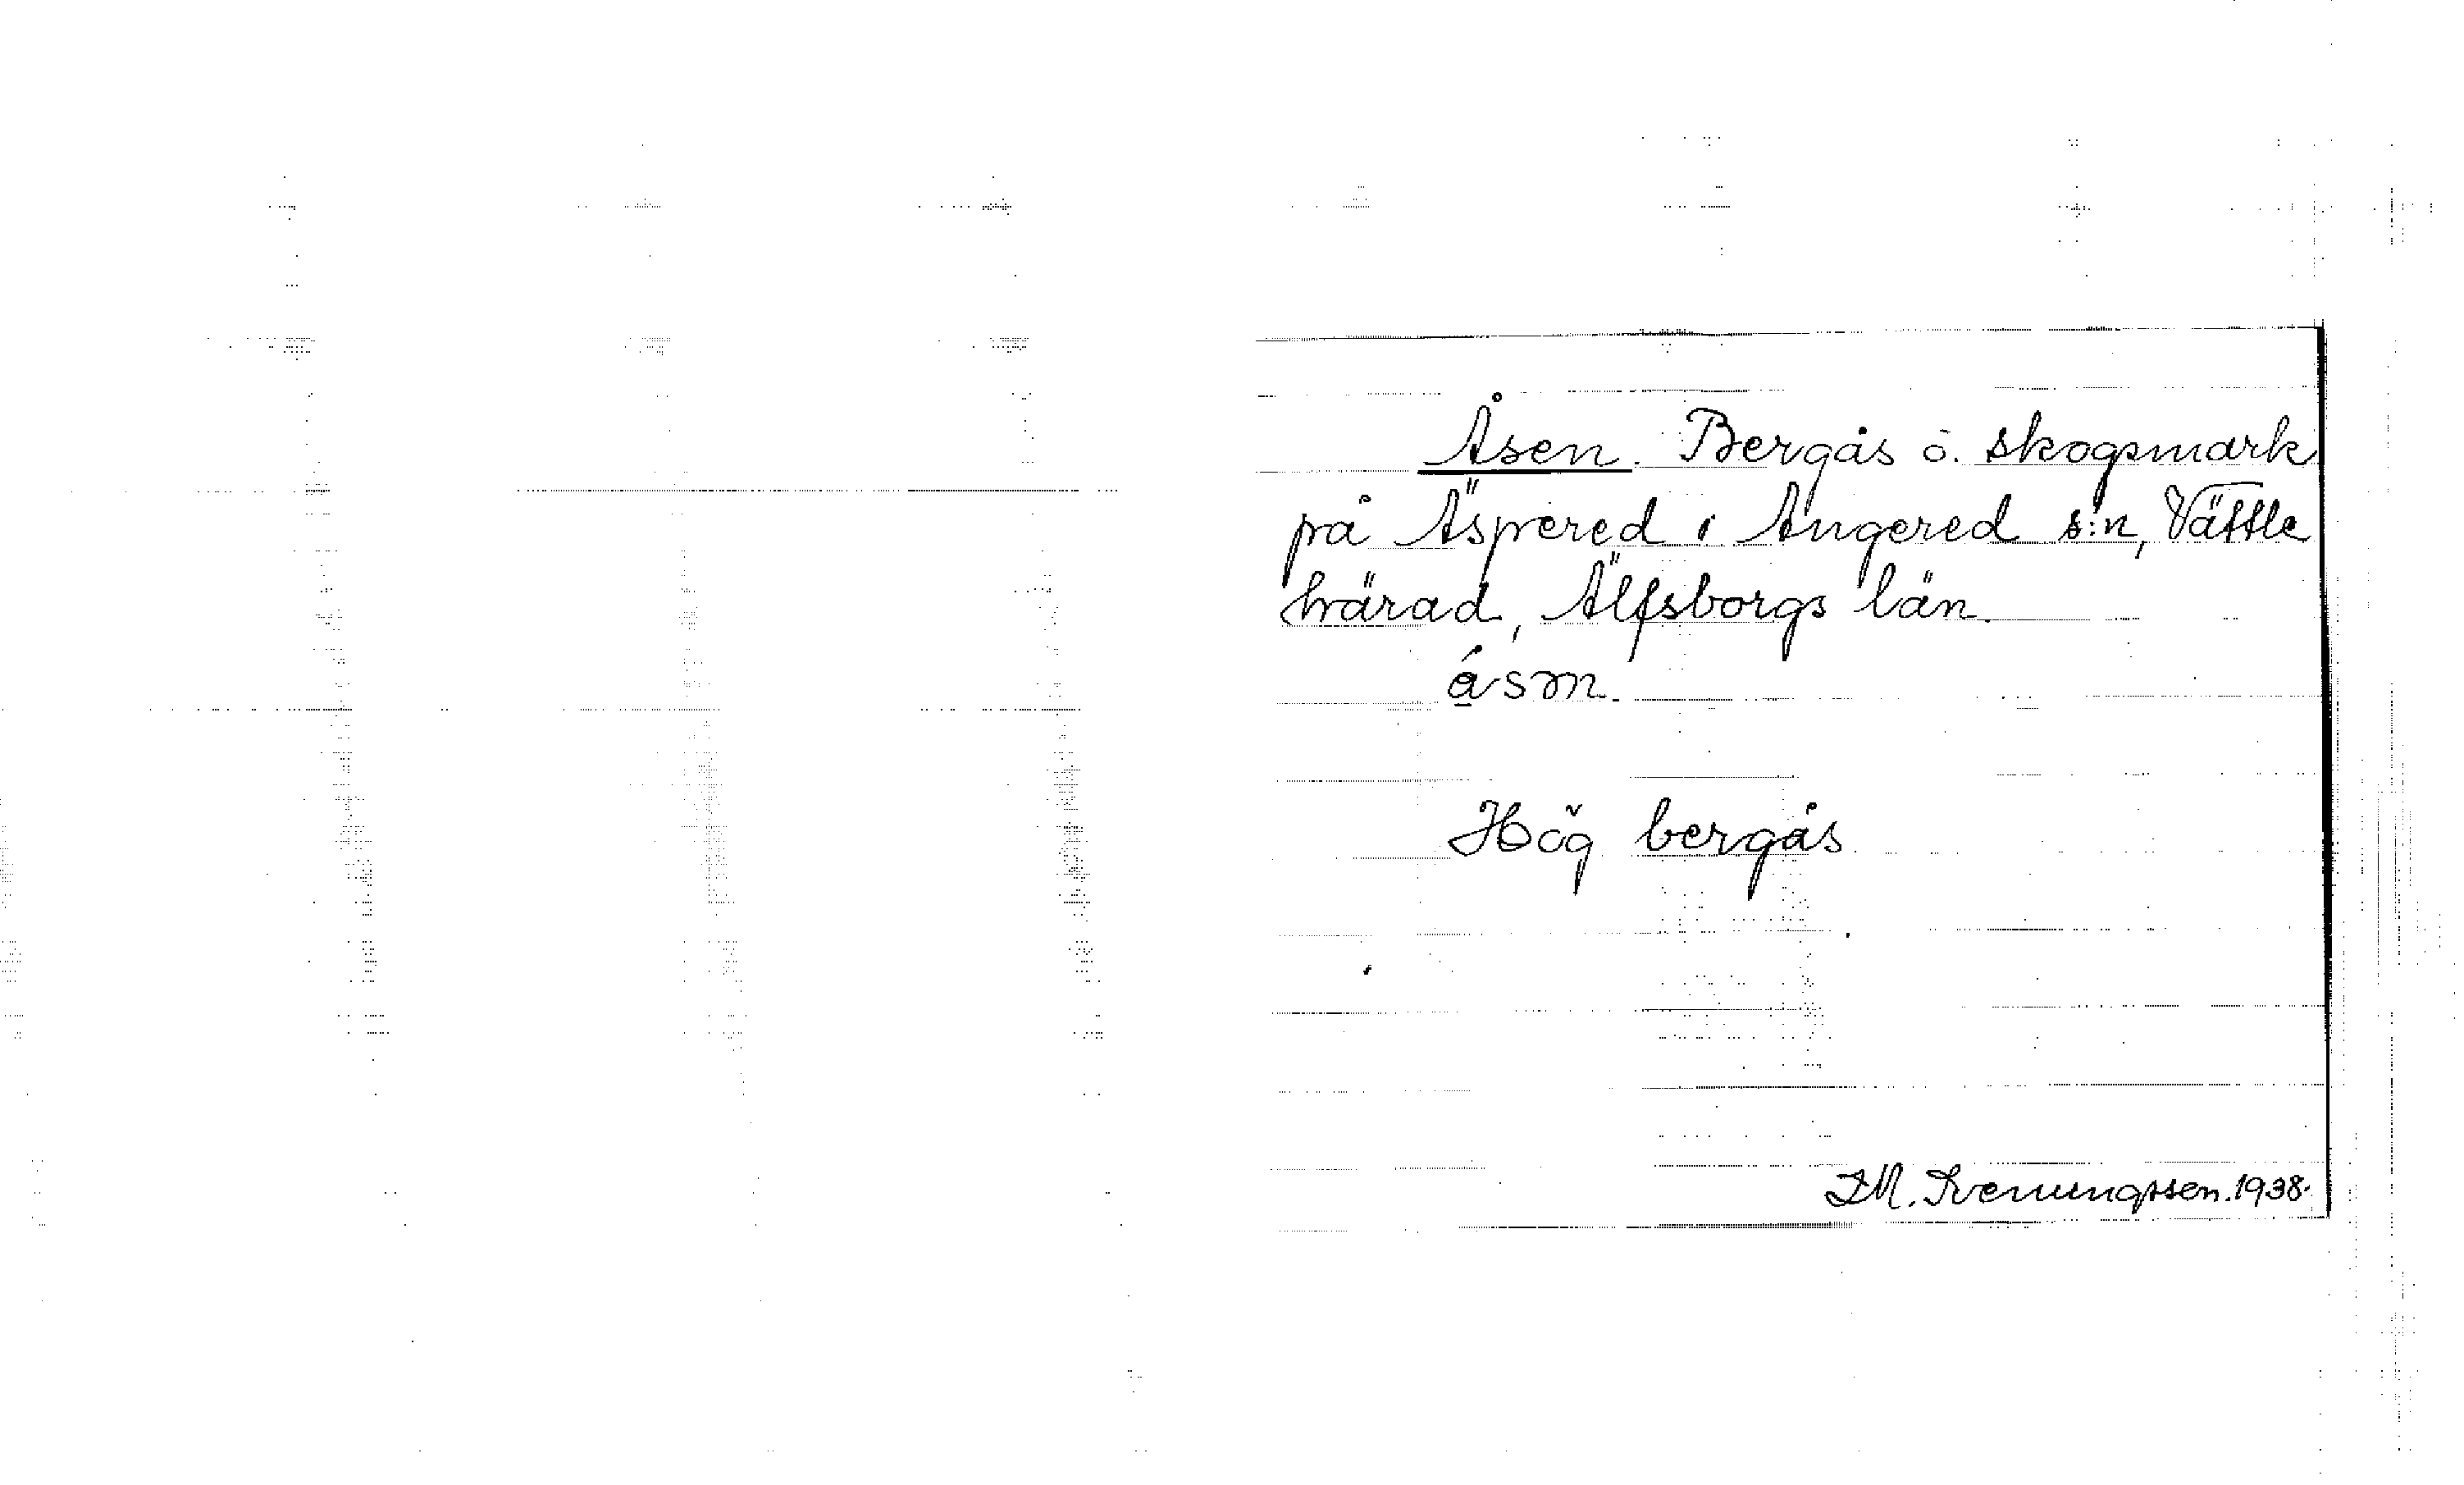 Åsen. Bergås o. skogsmark
på Äspered i Angered s:n, Vättle
härad, Älfsborgs län.
åsm.
Hög bergås
1938.